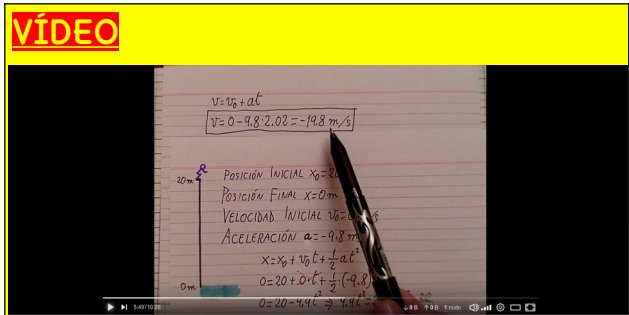 VÍDEO
v=v₀+at
v=0-9.8·2.02=-19.8 m/s
20m
POSICIÓN INICIAL x₀=20
POSICIÓN FINAL x=0m
VELOCIDAD INICIAL v₀=
ACELERACIÓN a=-9,8 m
x=x₀+v₀t+½at²
0=20+0·t+½·(-9,8)
0m
0=20-4,9t² ⇒ 4,9t²=
5:49/10:26
↓0B ↑0B 1 nodo